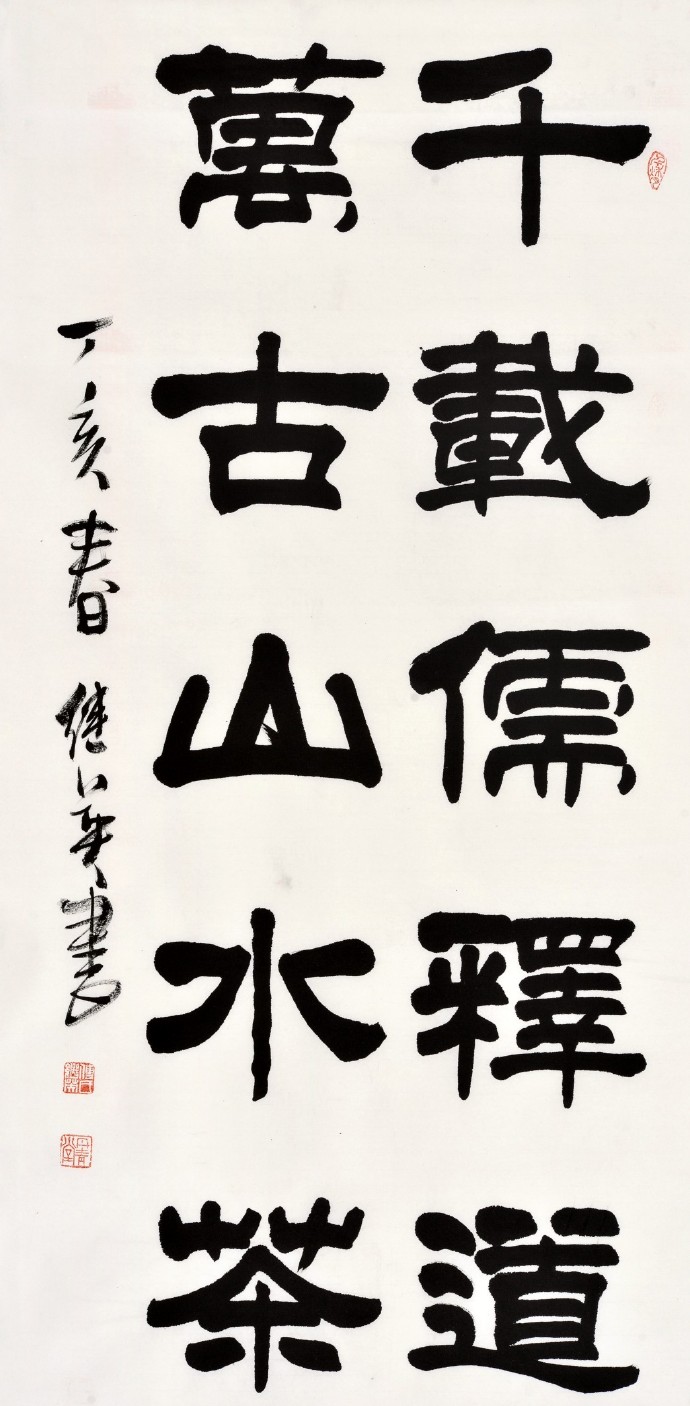 千載儒釋道
萬古山水茶
丁亥春 继英書